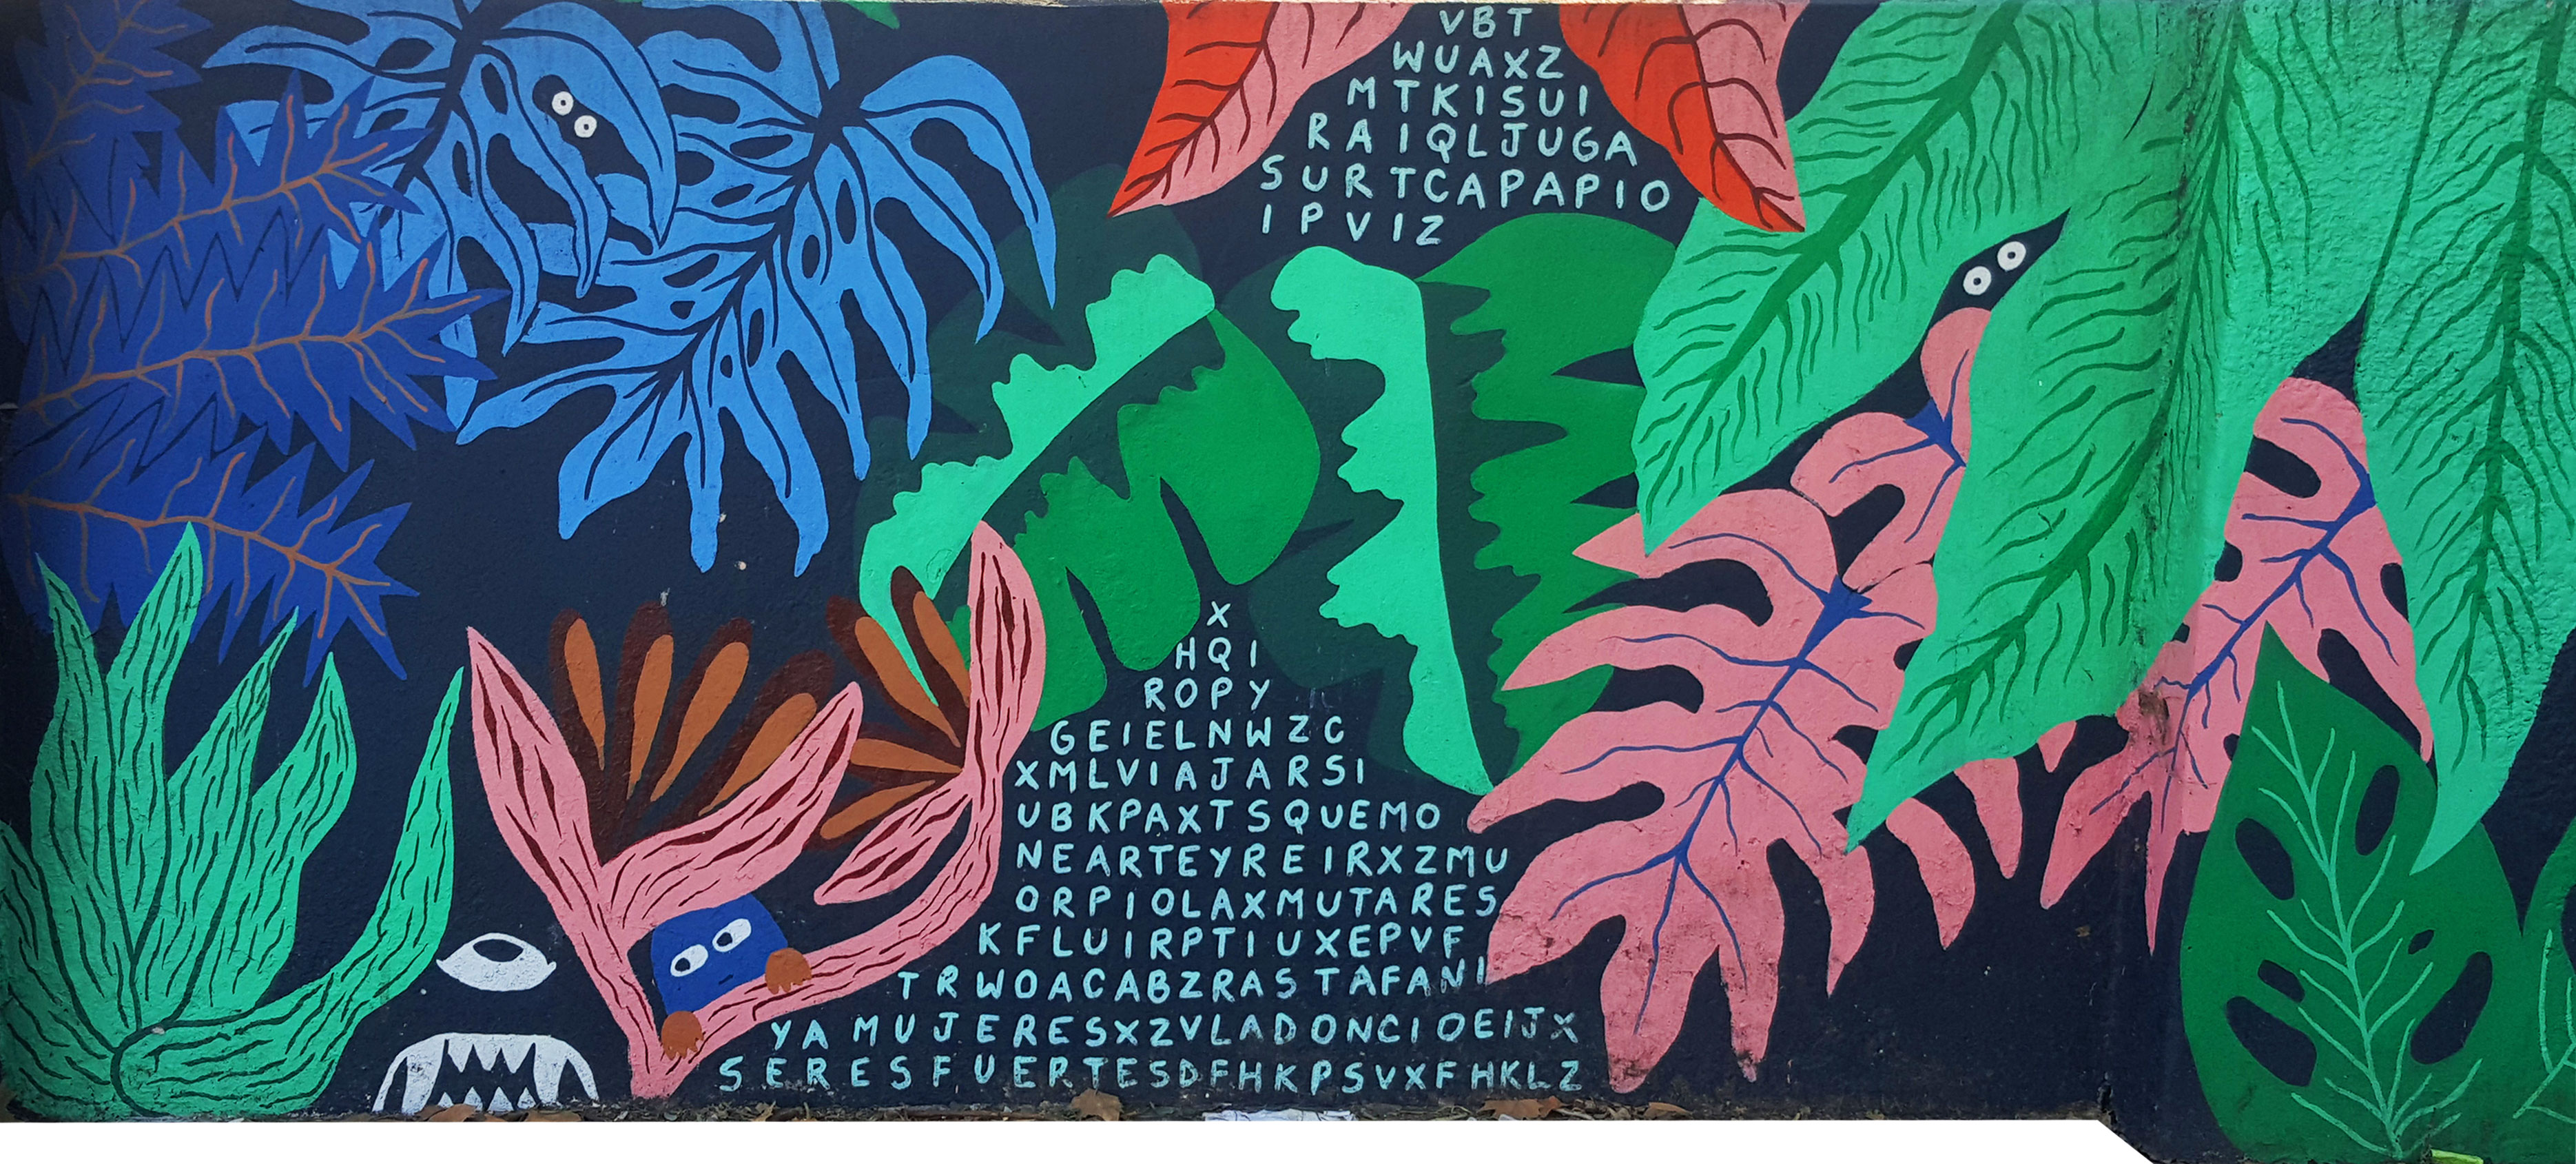 VBT
WUAXZ
MTKISUI
RAIQLJUGA
SURTCAPAPIO
IPVIZ
X
HQI
ROPY
GEIELNWZC
XMLVIAJARSI
UBKPAXTSQUEMO
NEARTEYREIRXZMU
ORPIOLAXMUTARES
KFLUIRPTIUXEPVF
TRWOACABZRASTAFANI
YAMUJERESXZVLADONCIOEIJX
SERESFUERTESDFHKPSVXFHKLZ